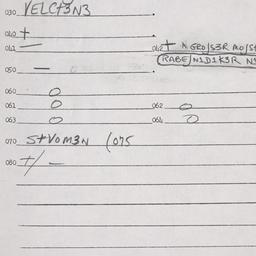 030 VELCT3N3
040 +
041 —
042 + N GRO/S3R MO/S+
(RABE) N1D1K3R N3
050 —
060 O
061 O
062 O
063 O
064 O
070 S+VOM3N (075
080 +/ —